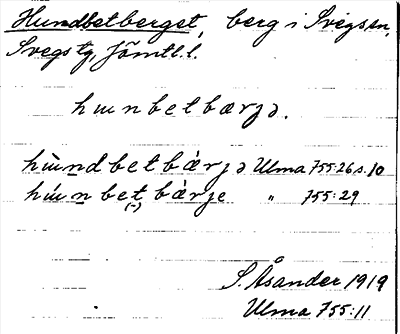 Hundbetberget, berg i Svegs sn,
Svegs tg, Jämtl. l.
hɯnbetbærjə.
hɯ̀ndbetbæ̀rjə Ulma 755:26 s. 10
hɯ́nbetbæ̀rje " 755:29
(-)
S. Åsander 1919
Ulma 755:11